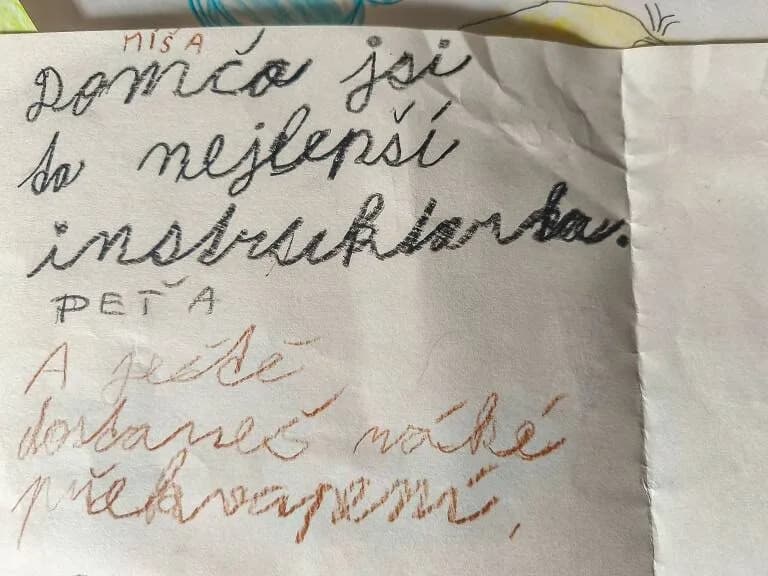 MÍŠA
Domča jsi
ta nejlepší
instruktarka.
PEŤA
A ještě
dostaneš náké
překvapení,